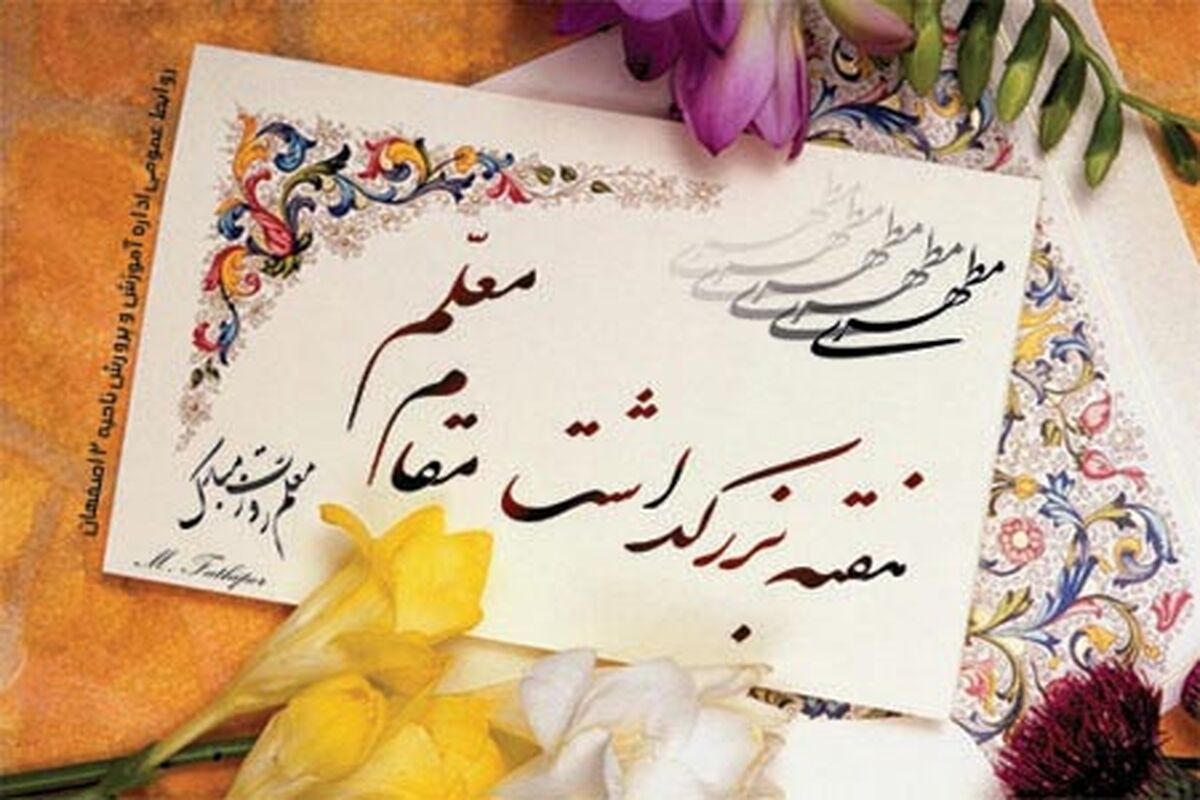 مطهری
مطهری
مطهری
مطهری
هفته بزرگداشت مقام معلّم
معلم روزت مبارک
M. Fathipor
روابط عمومی اداره آموزش و پرورش ناحیه ۲ اصفهان